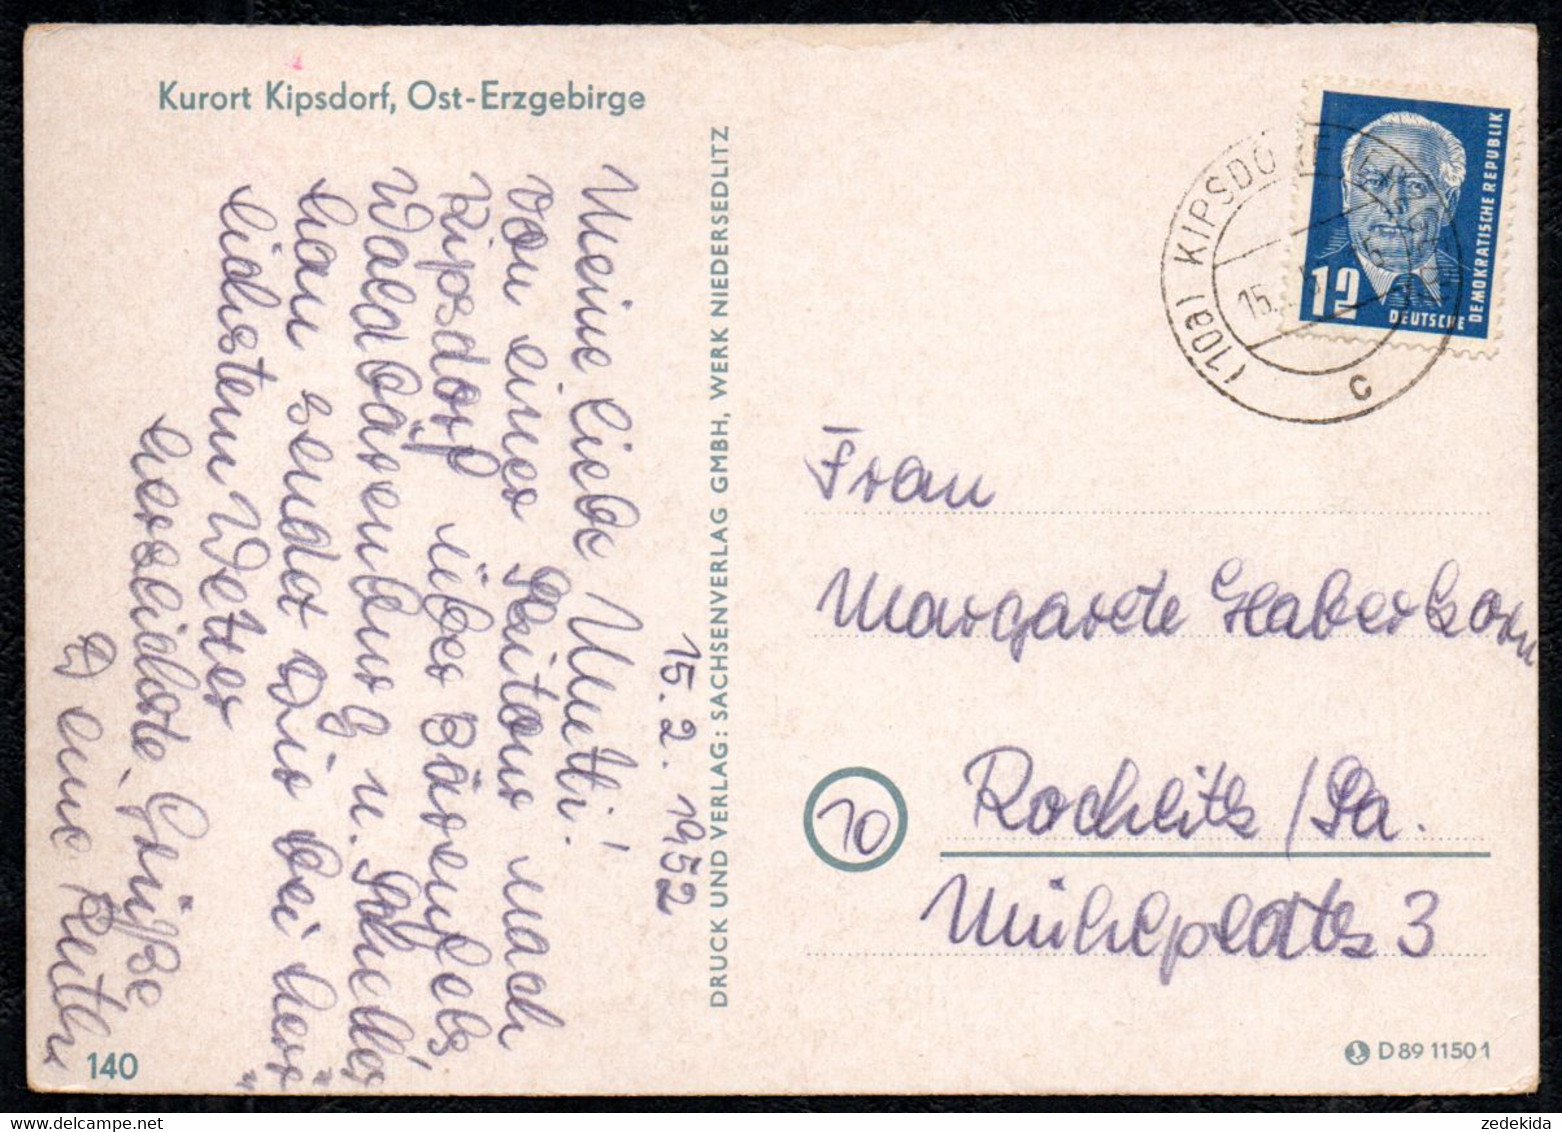 Kurort Kipsdorf, Ost-Erzgebirge
15. 2. 1952
Meine liebe Mutti!
Von einer Skitour nach
Kipsdorf über Bärenfels,
Waldbärenburg u. Schneller
han sendet Dir bei herr
lichstem Wetter
herzlichste Grüße
Deine
140
DRUCK UND VERLAG: SACHSENVERLAG GMBH, WERK NIEDERSEDLITZ
(10a) KIPSDO
15.
c
12
DEUTSCHE
DEMOKRATISCHE REPUBLIK
Frau
Margarete Haberkorn
10
Rochlitz / Sa.
Mühlplatz 3
D 89 11501
zedekida